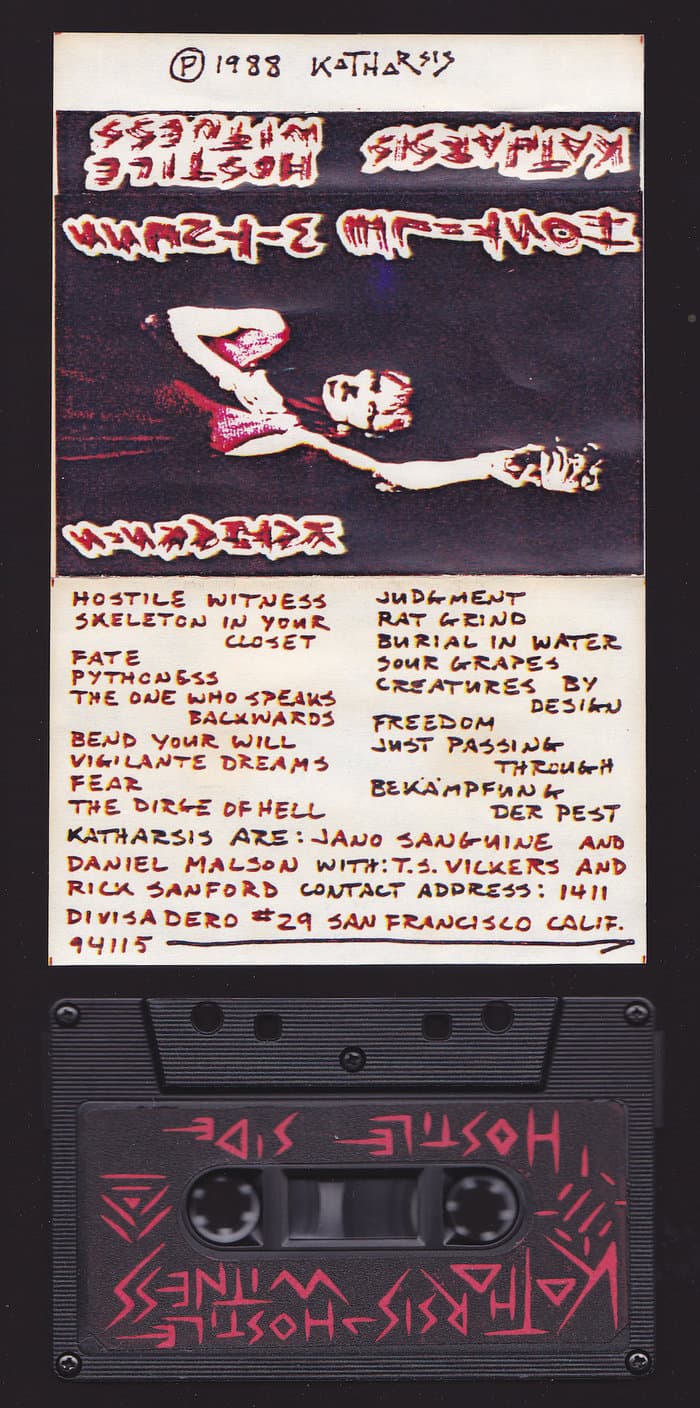 Ⓟ 1988 KATHARSIS
KATHARSIS HOSTILE
WITNESS
HOSTILE WITNESS
KATHARSIS
HOSTILE WITNESS
SKELETON IN YOUR
CLOSET
FATE
PYTHONESS
THE ONE WHO SPEAKS
BACKWARDS
BEND YOUR WILL
VIGILANTE DREAMS
FEAR
THE DIRGE OF HELL
JUDGMENT
RAT GRIND
BURIAL IN WATER
SOUR GRAPES
CREATURES BY
DESIGN
FREEDOM
JUST PASSING
THROUGH
BEKÄMPFUNG
DER PEST
KATHARSIS ARE: JANO SANGUINE AND
DANIEL MALSON WITH: T.S. VICKERS AND
RICK SANFORD CONTACT ADDRESS: 1411
DIVISADERO #29 SAN FRANCISCO CALIF.
94115
HOSTILE SIDE
KATHARSIS HOSTILE
WITNESS